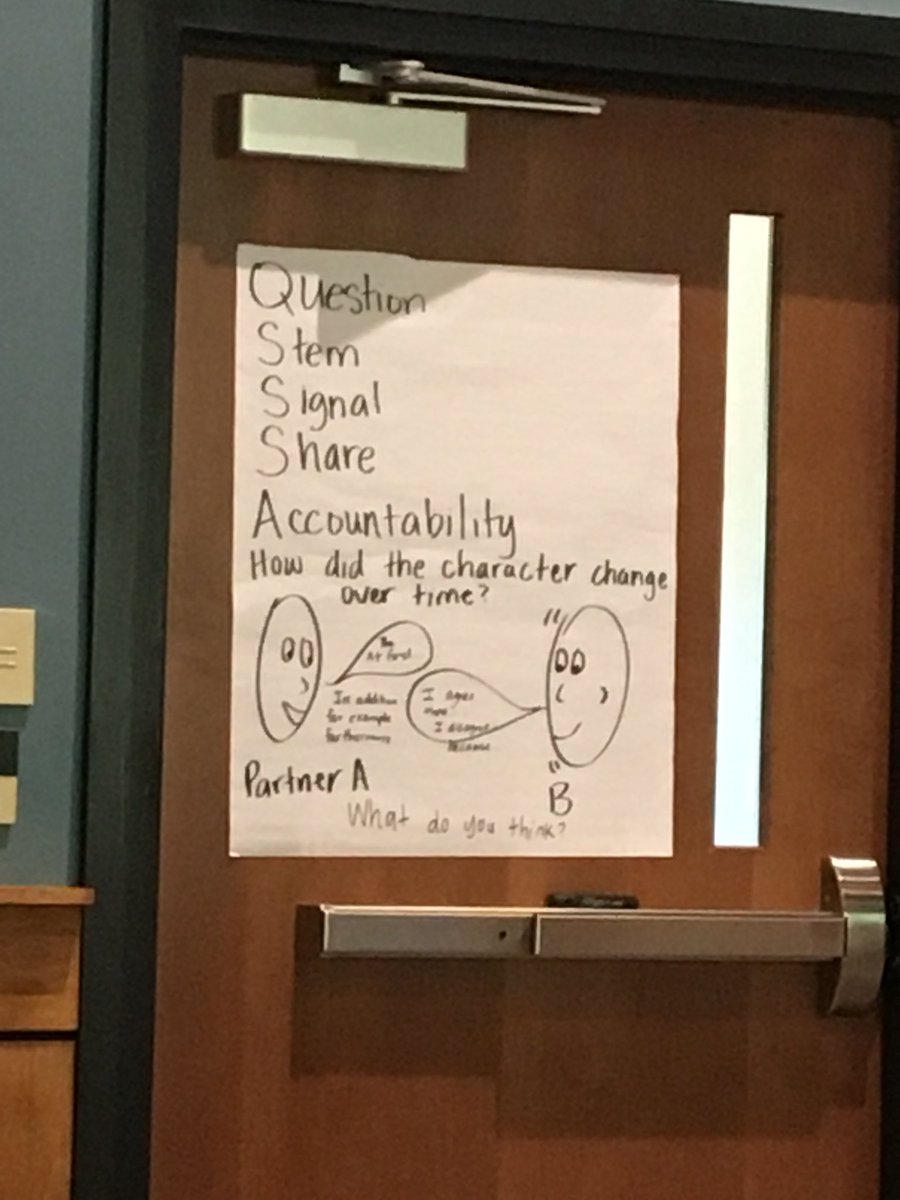 Question
Stem
Signal
Share
Accountability
How did the character change
over time?
At first
In addition
for example
furthermore
I agree
I disagree
because
Partner A
B
What do you think?